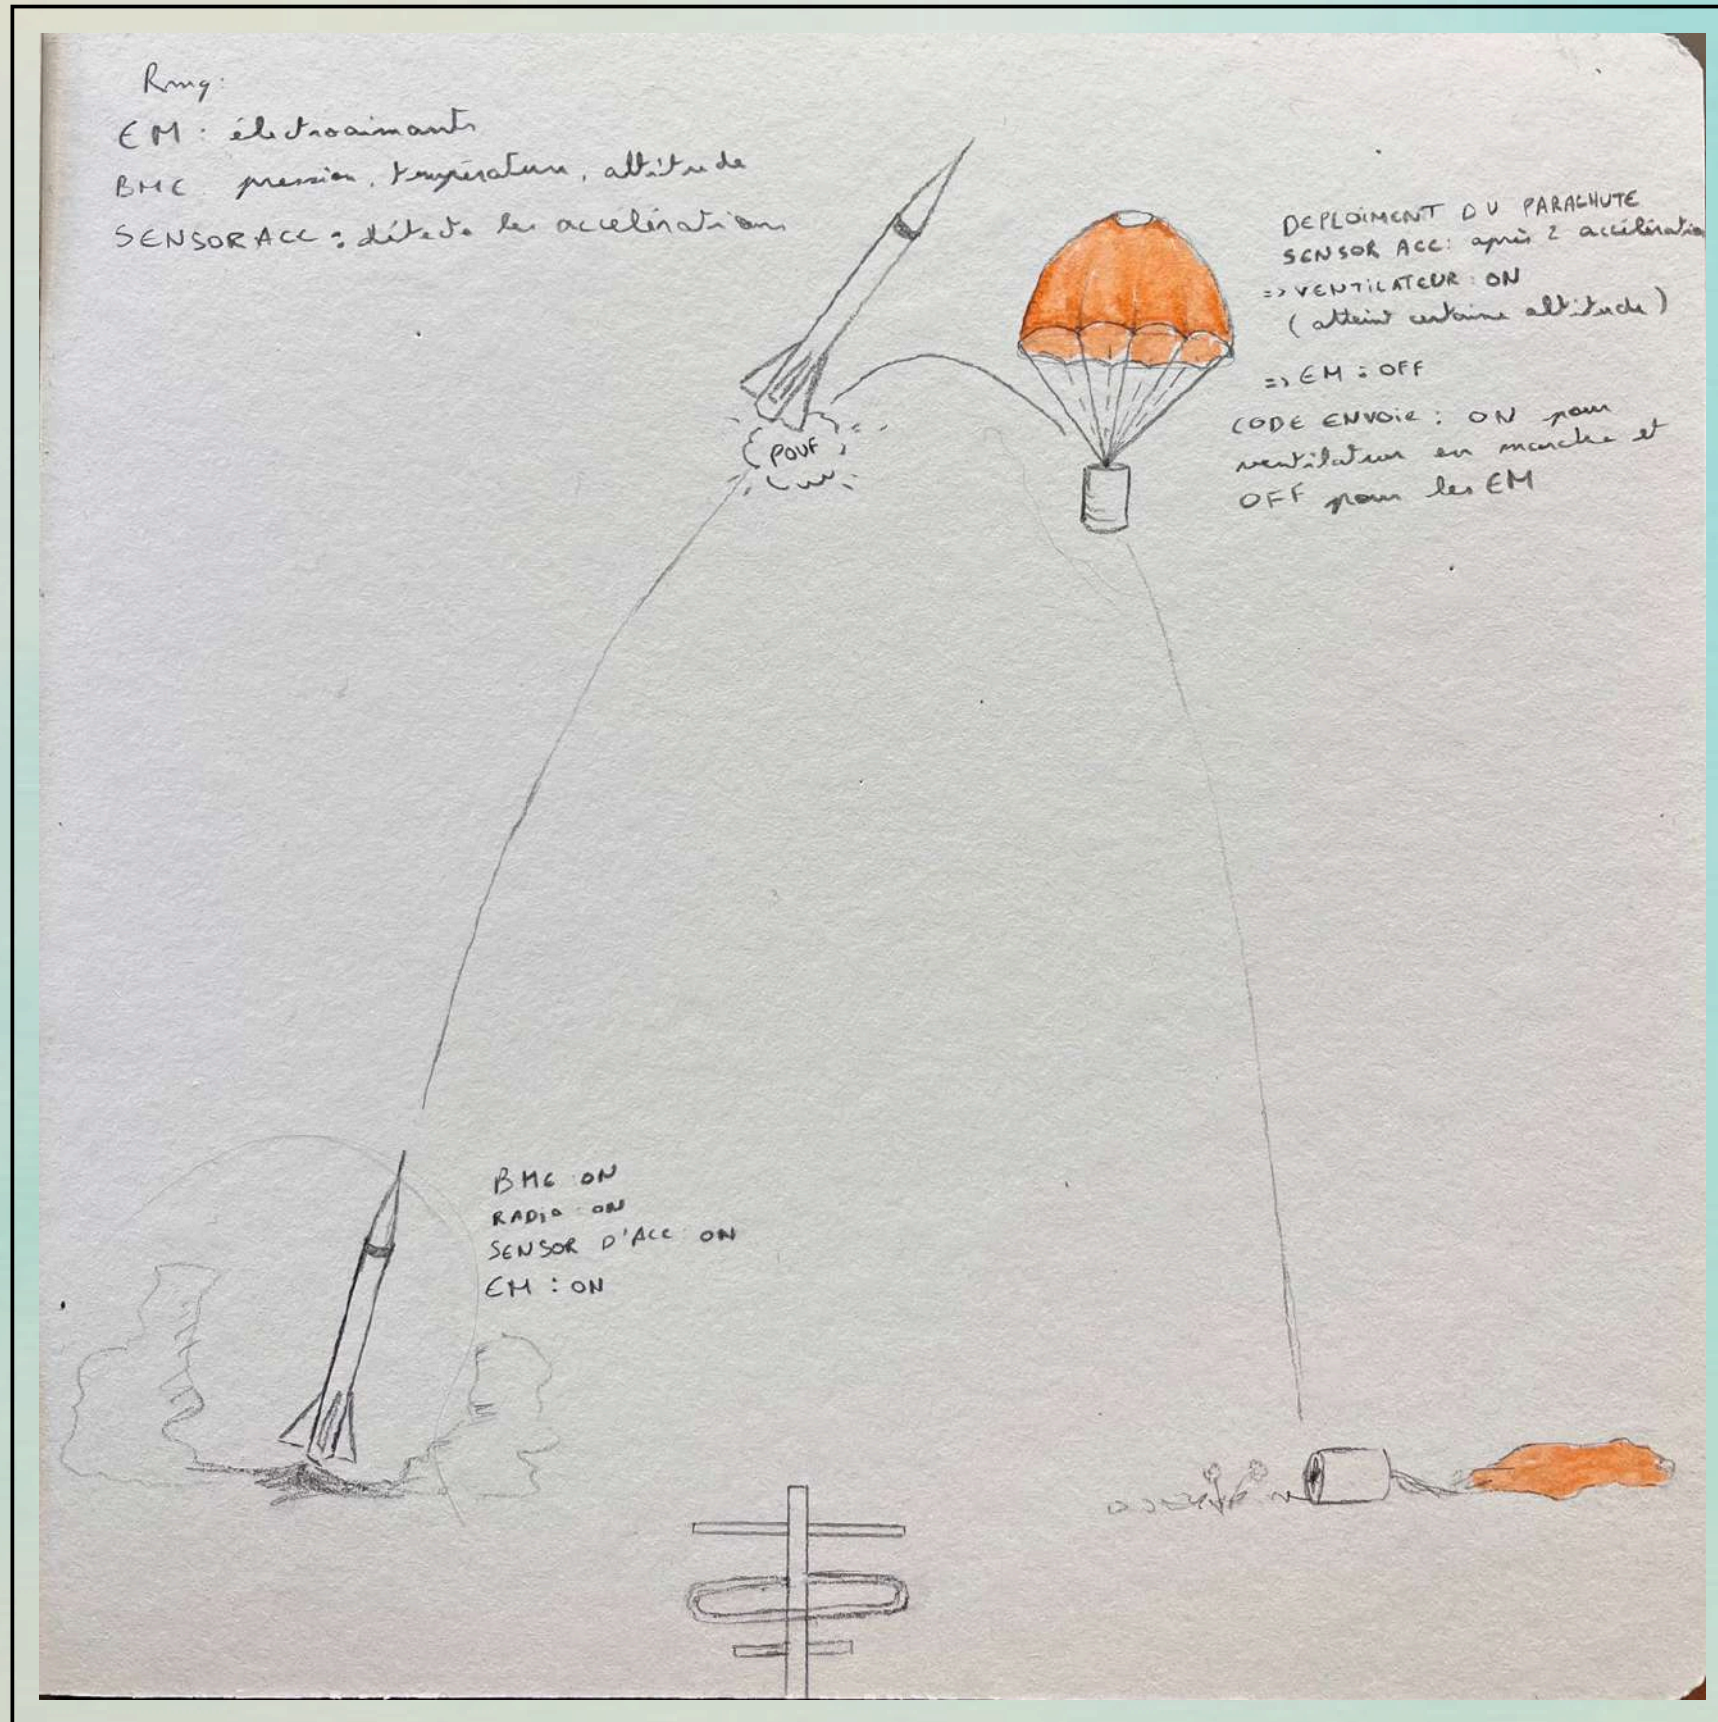 Rmq:
EM : électroaimants
BME : pression, température, altitude
SENSOR ACC : détecte les accélérations
DEPLOIMENT DU PARACHUTE
SENSOR ACC : après 2 accélération
=> VENTILATEUR : ON
(atteint certaine altitude)
=> EM : OFF
CODE ENVOIE : ON pour
ventilateur en marche et
OFF pour les EM
POUF
BME ON
RADIO ON
SENSOR D'ACC ON
EM : ON